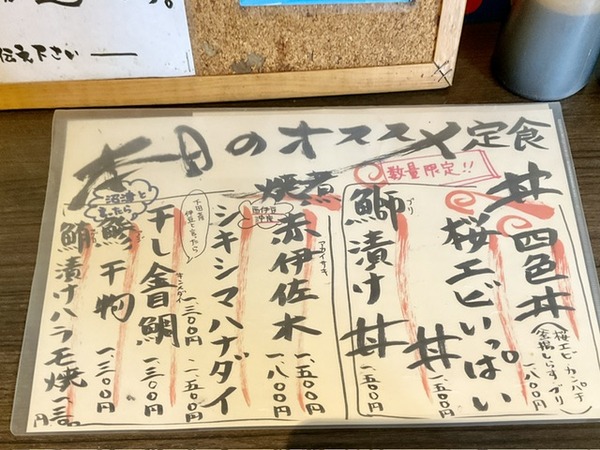 伝え下さい
本日のオススメ定食
数量限定!!
丼
四色丼
(桜エビ カンパチ
釜揚しらす ブリ)
一、八〇〇円
桜エビいっぱい丼
一、五〇〇円
ブリ
鰤漬け丼
一、五〇〇円
焼 煮
西伊豆
アカイサキ
赤伊佐木
一、八〇〇円
シキシマハナダイ
一、五〇〇円
下田産
伊豆と言ったら
キンメダイ
干し金目鯛
一、三〇〇円
一、三〇〇円
沼津と
言ったら
鯵干物
一、三〇〇円
鮪漬けハラモ焼
円